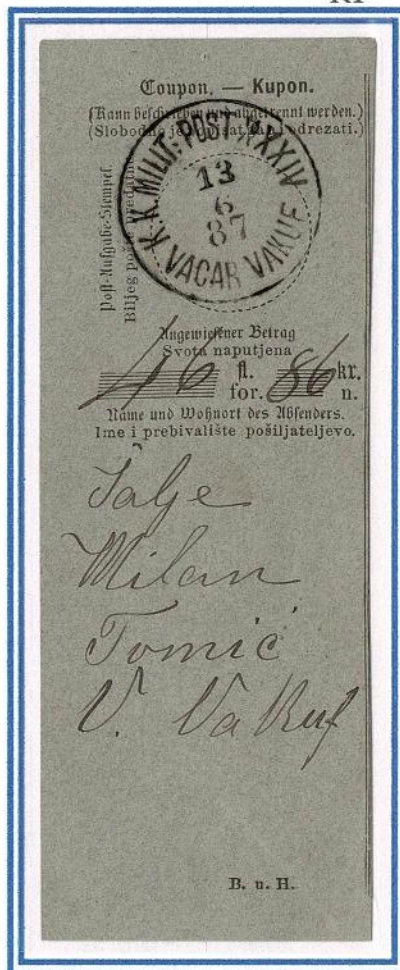 Coupon. — Kupon.
(Kann beschrieben und abgetrennt werden.)
(Slobodno je pisati odrezati.)
Post-Aufgabe-Stempel.
Biljeg pošte predatne
K. K. MILIT: POST XXXIV
13
6
87
VACAR VAKUF
Angewiesener Betrag
Svota naputjena
46 fl. 86 kr.
for. n.
Name und Wohnort des Absenders.
Ime i prebivalište pošiljateljevo.
Šalje
Milan
Tomić
V. Vakuf
B. u. H.